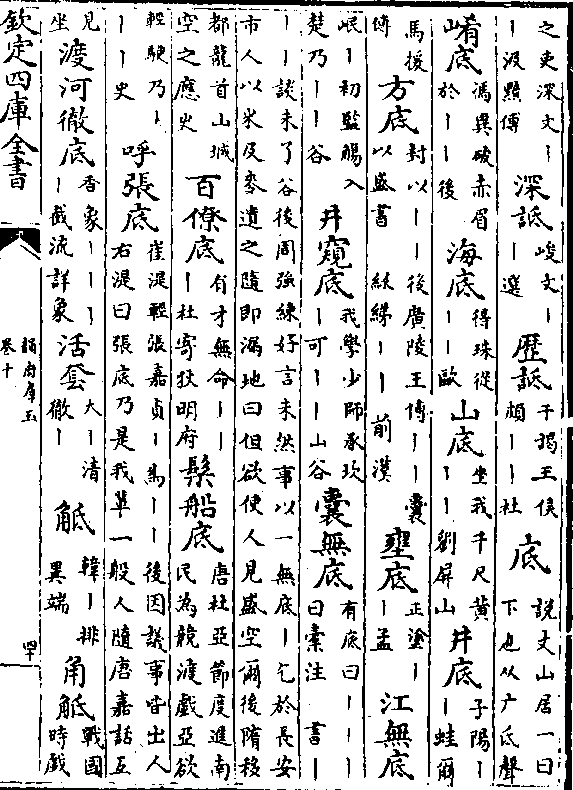 之吏深文丨丨汲黯傳 深詆 峻文丨丨選 歴詆 干謁王侯頗丨丨杜 底 說文山居一曰下也从广氐聲
崤底 馮異破赤眉於丨丨後 海底 得珠從丨丨歐 山底 坐我千尺黄丨丨劉屏山 井底 子陽丨丨蛙爾
馬援傳 方底 封以丨丨後廣陵王傳丨丨囊以盛書 綈丨丨前漢 壅底 正塗丨丨孟 江無底
岷丨初監觴入楚乃丨丨谷 井窺底 我學少師承坎丨可丨丨山谷 囊無底 有底曰丨丨丨曰橐注 書丨
丨丨談未了谷後周强練好言未然事以一無底丨乞於長安市人以米及麥遺之隨即漏地曰但欲使人見盛空爾後隋移
都龍首山城空之應史 百僚底 有才無命丨丨丨杜寄狄明府 髹船底 唐杜亞節度進南民為競渡戲亞欲
輕駛乃丨丨丨史 呼張底 崔湜輕張嘉貞丨為丨丨後因議事皆出人右湜曰張底乃是我軰一般人隨唐嘉話互
見坐 渡河徹底 香象丨丨丨丨截流詳象 活套 大丨清徹丨 觝 韓丨排異端 角觝 戰國時戲
欽定四庫全書
韻府羣玉
卷十
四十